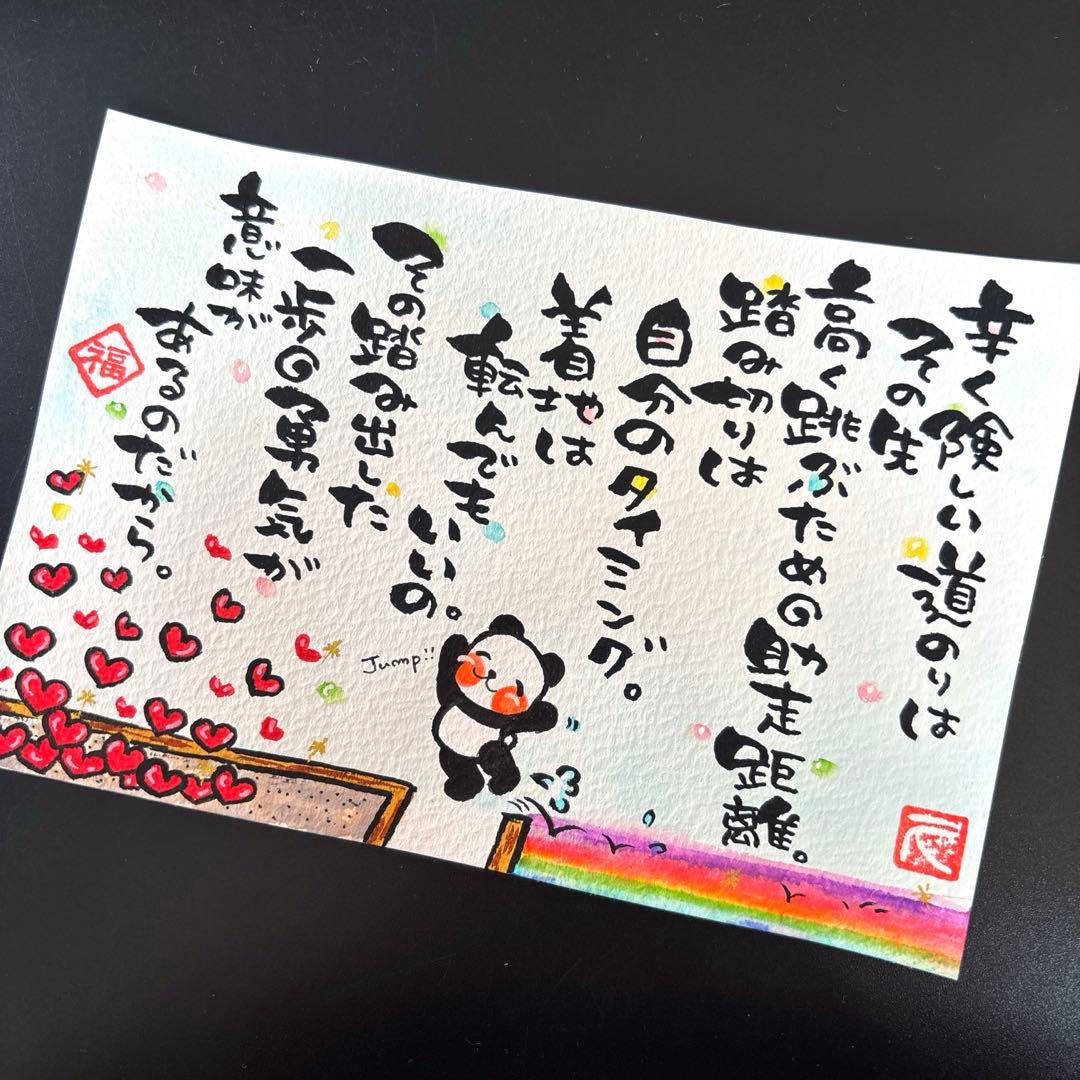 辛く険しい道のりは
その先
高く跳ぶための助走距離。
踏み切りは
自分のタイミング。
着地は
転んでも
いいの。
その踏み出した
一歩の勇気が
意味が
あるのだから。
Jump!!
福